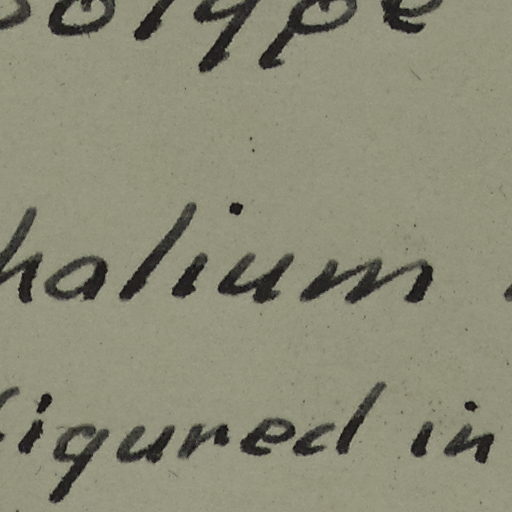 otype
halium
figured in